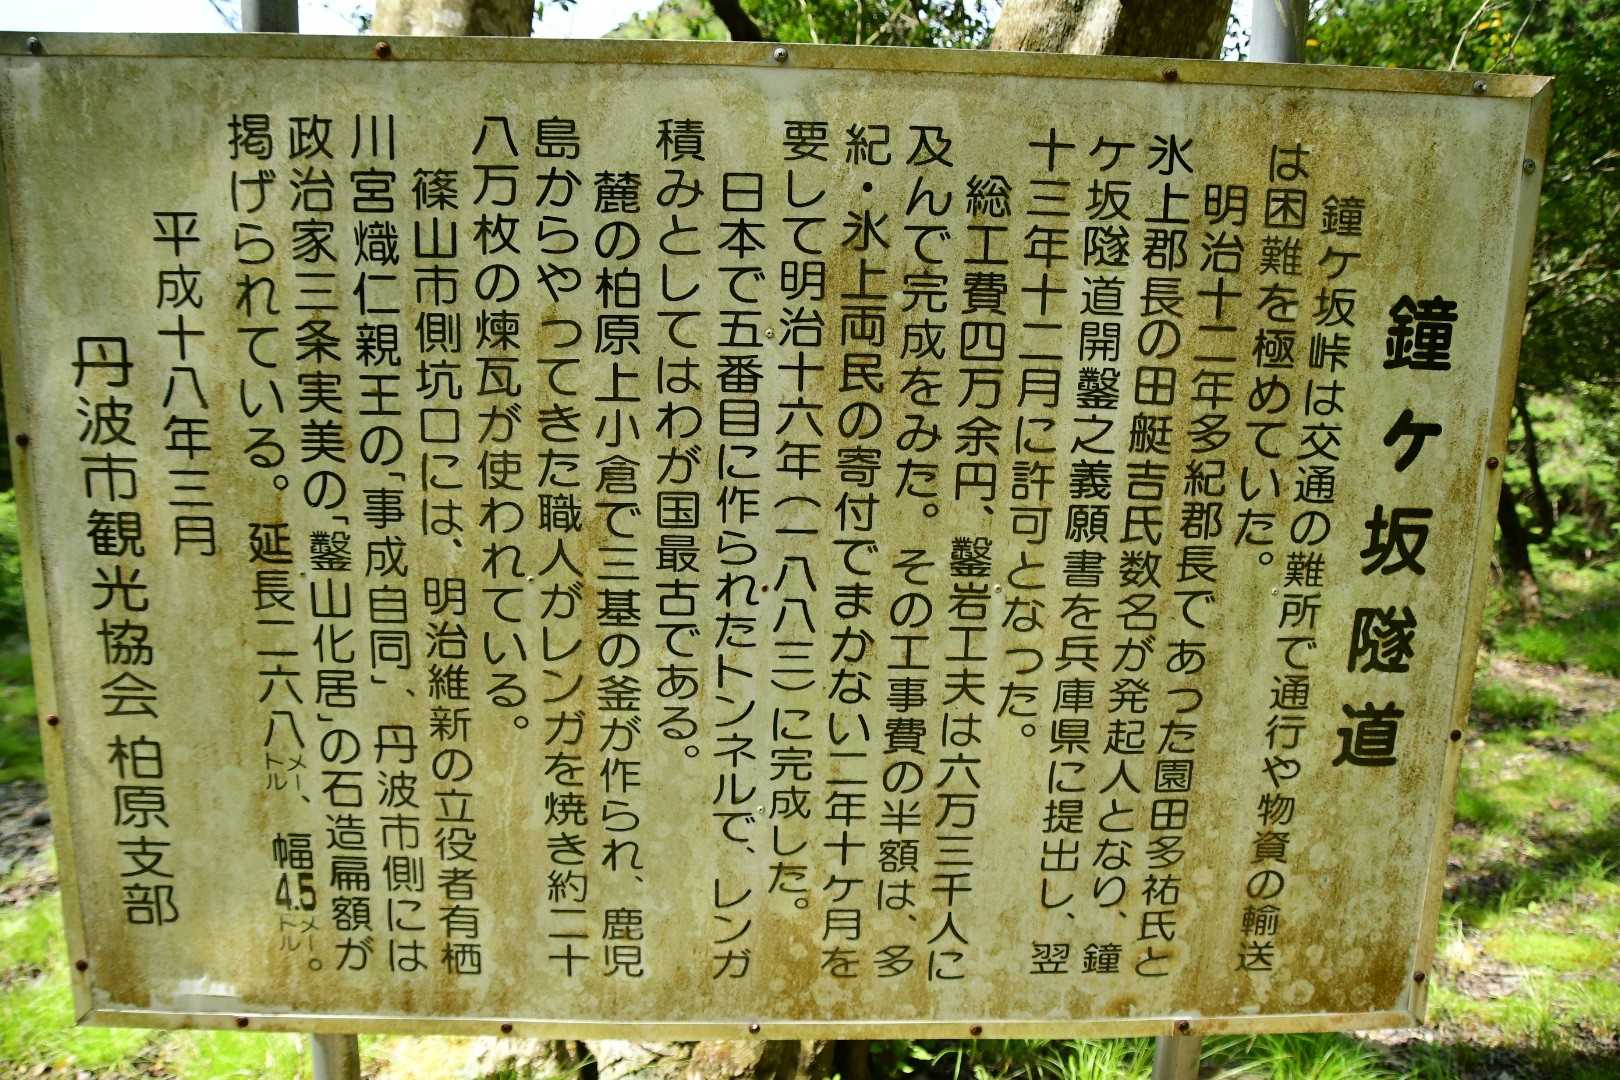 鐘ケ坂隧道
鐘ケ坂峠は交通の難所で通行や物資の輸送
は困難を極めていた。
明治十二年多紀郡長であった園田多祐氏と
氷上郡長の田艇吉氏数名が発起人となり、鐘
ケ坂隧道開鑿之義願書を兵庫県に提出し、翌
十三年十二月に許可となった。
総工費四万余円、鑿岩工夫は六万三千人に
及んで完成をみた。その工事費の半額は、多
紀・氷上両民の寄付でまかない二年十ケ月を
要して明治十六年（一八八三）に完成した。
日本で五番目に作られたトンネルで、レンガ
積みとしてはわが国最古である。
麓の柏原上小倉で三基の釜が作られ、鹿児
島からやってきた職人がレンガを焼き約二十
八万枚の煉瓦が使われている。
篠山市側坑口には、明治維新の立役者有栖
川宮熾仁親王の「事成自同」、丹波市側には
政治家三条実美の「鑿山化居」の石造扁額が
掲げられている。延長二六八メートル、幅4.5メートル。
平成十八年三月
丹波市観光協会 柏原支部